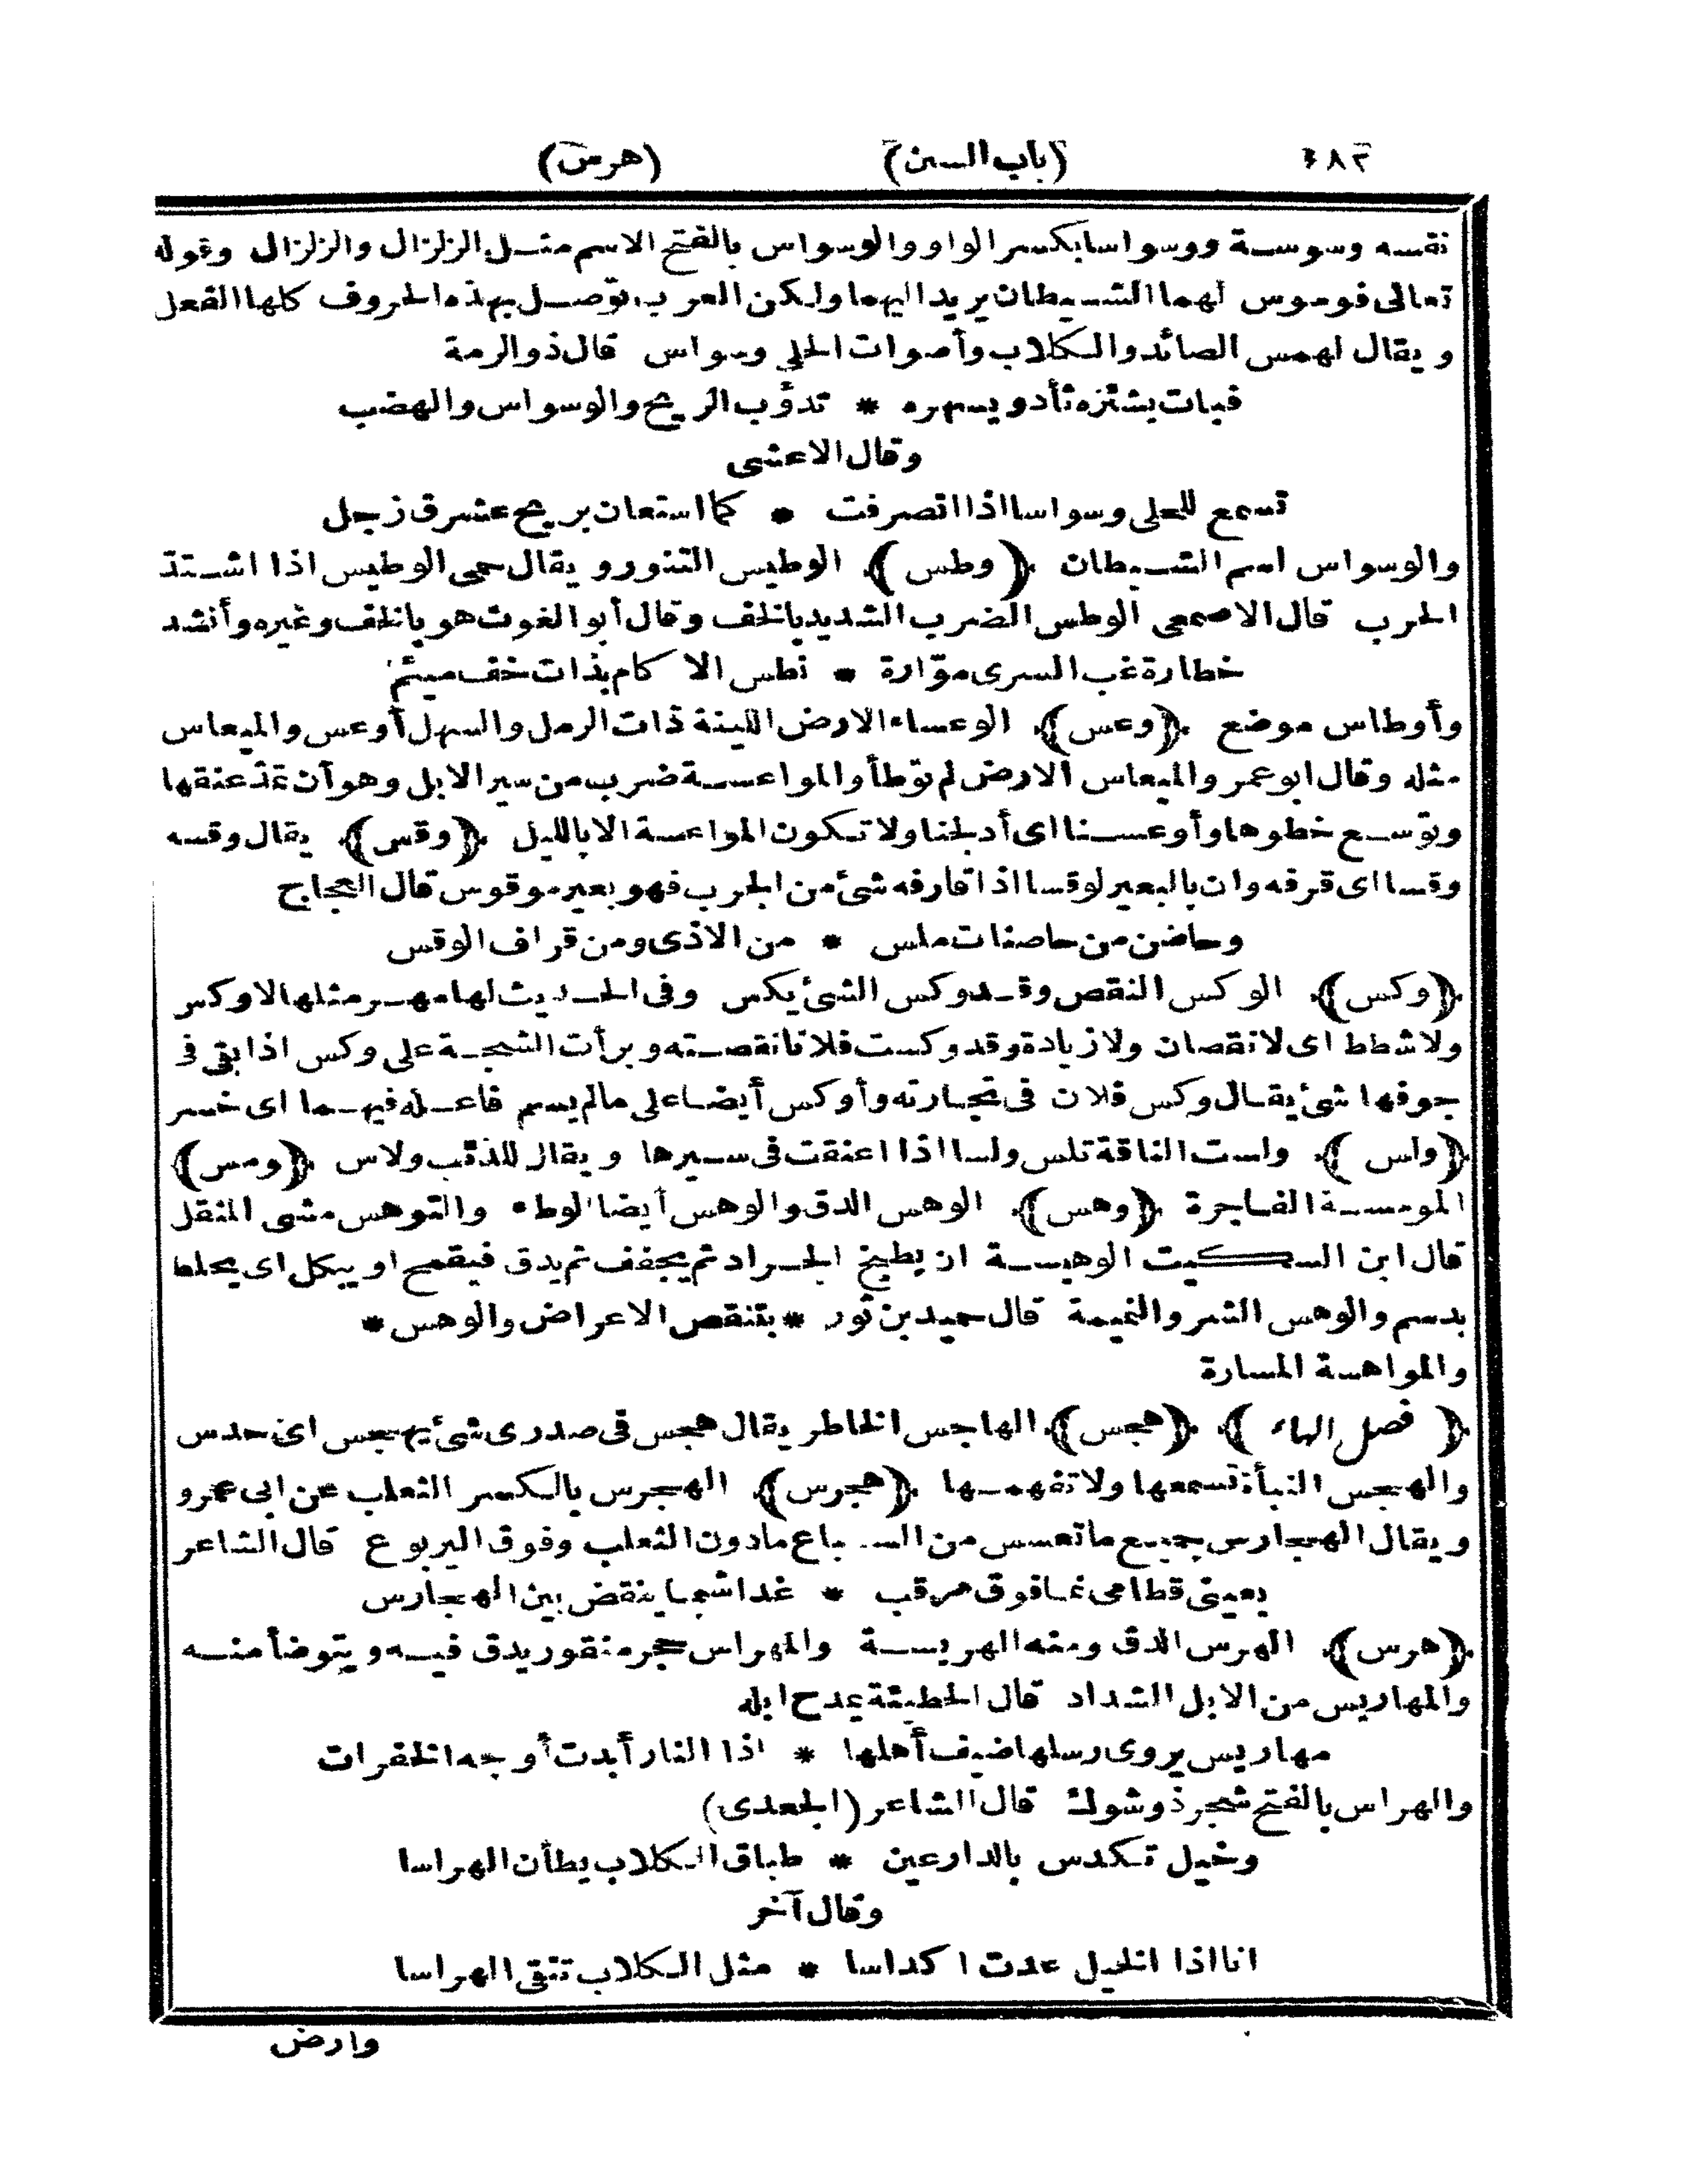 ٤٨٢ (باب السين) (هرس)
نفسه وسوسة ووسواسا بكسر الواو والوسواس بالفتح الاسم مثل الزلزال والزلزال وقوله
تعالى فوسوس لهما الشيطان يريد اليهما ولكن العرب توصل بهذه الحروف كلها الفعل
ويقال لهمس الصائد والكلاب وأصوات الحلي وسواس قال ذو الرمة
فبات يشئزه ثأد ويسهره * تدؤب الريح والوسواس والهضب
وقال الاعشى
تسمع للحلى وسواسا اذا انصرفت * كما استعان بريح عشرق زجل
والوسواس اسم الشيطان ﴿وطس﴾ الوطيس التنور ويقال حمى الوطيس اذا اشتدّ
الحرب قال الاصمعى الوطس الضرب الشديد بالخف وقال أبو الغوث هو بالخف وغيره وأنشد
خطارة غب السرى موّارة * تطس الاكام بذات خف ميثم
وأوطاس موضع ﴿وعس﴾ الوعساء الارض اللينة ذات الرمل والسهل أوعس والميعاس
مثله وقال ابو عمرو الميعاس الارض لم توطأ والمواعسة ضرب من سير الابل وهو أن تمدّ عنقها
وتوسع خطوها وأوعسنا اى أدلجنا ولا تكون المواعسة الا بالليل ﴿وقس﴾ يقال وقسه
وقسا اى قرفه وان بالبعير لوقسا اذا قارفه شئ من الجرب فهو بعير موقوس قال العجاج
وحاضن من حاصنات ملس * من الاذى ومن قراف الوقس
﴿وكس﴾ الوكس النقص وقد وكس الشئ يكس وفى الحديث لها مهر مثلها لا وكس
ولا شطط اى لا نقصان ولا زيادة وقد وكست فلانا نقصته وبرأت الشجة على وكس اذا بقى فى
جوفها شئ يقال وكس فلان فى تجارته وأوكس أيضا على ما لم يسم فاعله فيهما اى خسر
﴿ولس﴾ ولست الناقة تلس ولسا اذا اعنقت فى سيرها ويقال للذئب ولاس ﴿ومس﴾
المومسة الفاجرة ﴿وهس﴾ الوهس الدق والوهس أيضا الوطء والتوهس مشى المثقل
قال ابن السكيت الوهيسة ان يطبخ الجراد ثم يجفف ثم يدق فيقمح او يبكل اى يخلط
بدسم والوهس الشر والنميمة قال حميد بن ثور * بتنقص الاعراض والوهس *
والمواهسة المسارة
﴿فصل الهاء﴾ ﴿هجس﴾ الهاجس الخاطر يقال هجس فى صدرى شئ يهجس اى حدس
والهجس النبأة تسمعها ولا تفهمها ﴿هجرس﴾ الهجرس بالكسر الثعلب عن ابى عمرو
ويقال الهجارس جميع ما تعسس من السباع ما دون الثعلب وفوق اليربوع قال الشاعر
بعينى قطامى نما فوق مرقب * غدا شبما ينقض بين الهجارس
﴿هرس﴾ الهرس الدق ومنه الهريسة والمهراس حجر منقور يدق فيه ويتوضأ منه
والمهاريس من الابل الشداد قال الحطيئة يمدح ابله
مهاريس يروى رسلها ضيف أهلها * اذا النار أبدت أوجه الخفرات
والهراس بالفتح شجر ذو شوك قال الشاعر (الجعدى)
وخيل تكدس بالدارعين * طباق الكلاب يطأن الهراسا
وقال آخر
انا اذا الخيل عدت اكداسا * مثل الكلاب تتقى الهراسا
وارض